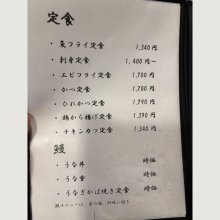 定食
・魚フライ定食 1,340円
・刺身定食 1,400円〜
・エビフライ定食 1,700円
・かつ定食 1,700円
・ひれかつ定食 1,790円
・鶏から揚げ定食 1,390円
・チキンカツ定食 1,340円
鰻
・うな丼 時価
・うな重 時価
・うなぎかば焼き定食 時価
鰻メニューは、香の物、肝吸い付き